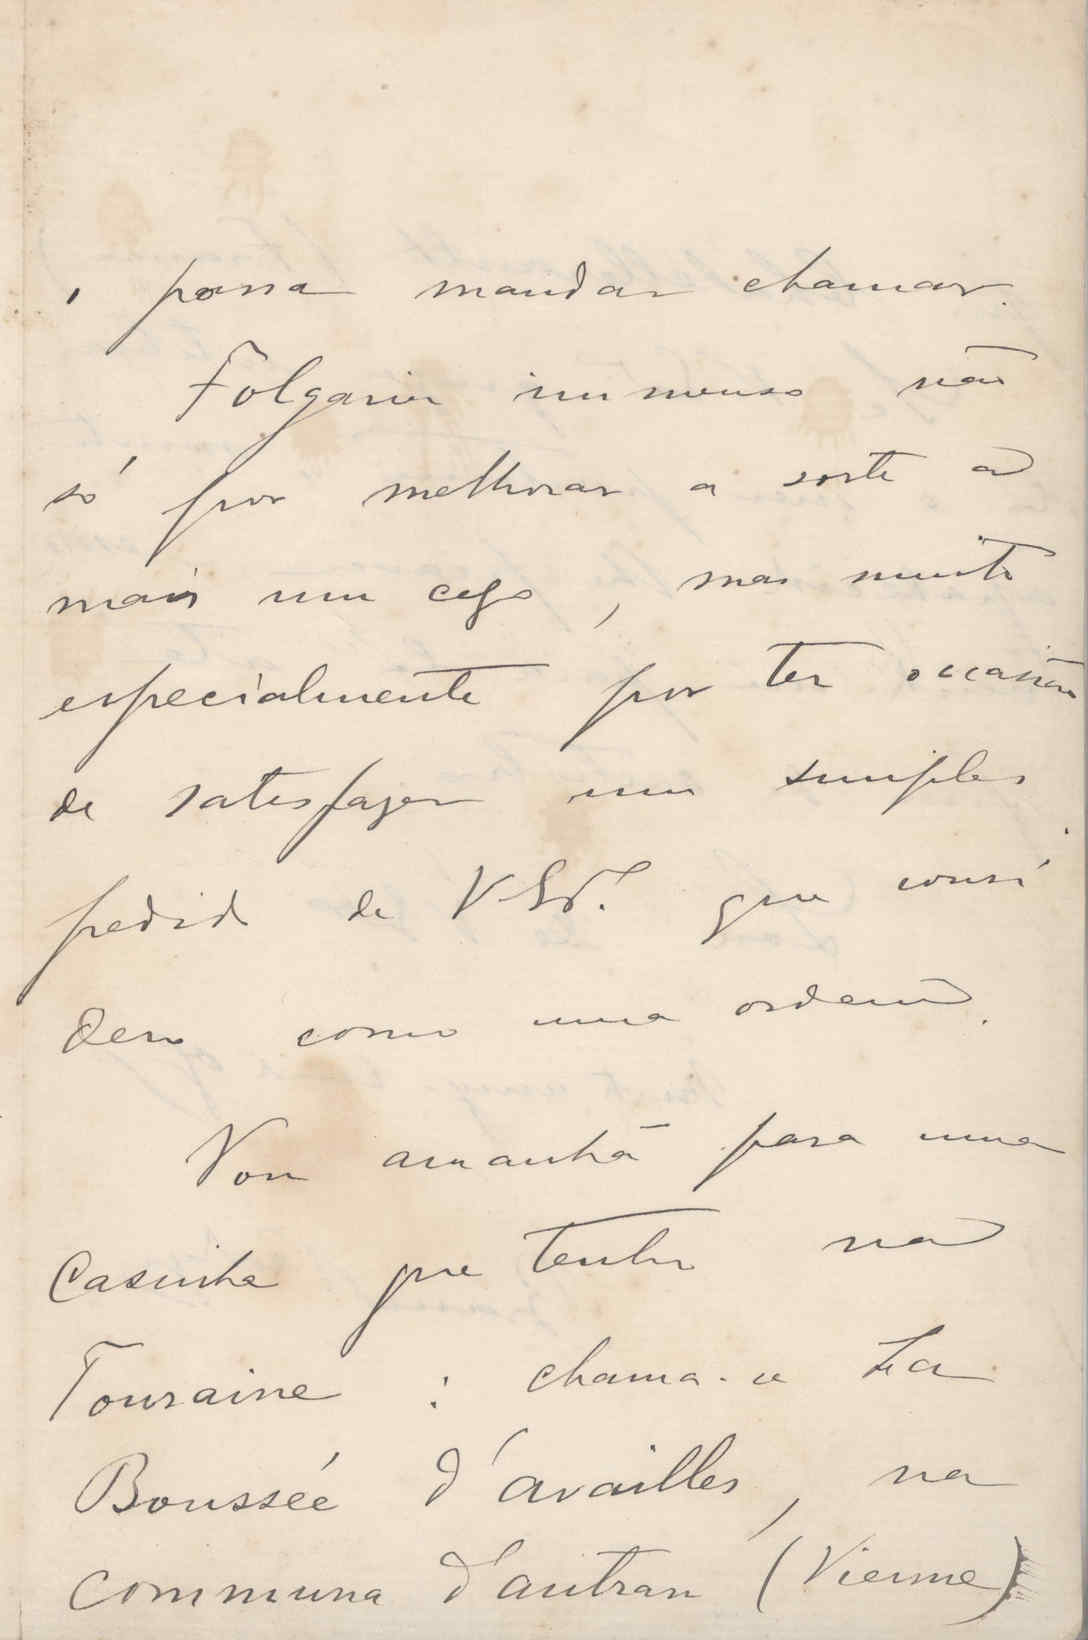 o possa mandar chamar.
Folgaria immenso não
só por melhorar a sorte a
mais um cego, mas muito
especialmente por ter occasião
de satisfazer um simples
pedido de V Ex.ª que consi
dero como uma ordem.
Vou amanhã para uma
casinha que tenho na
Touraine : chama-se La
Boussée d'availles, na
communa d'antran (Vienne)